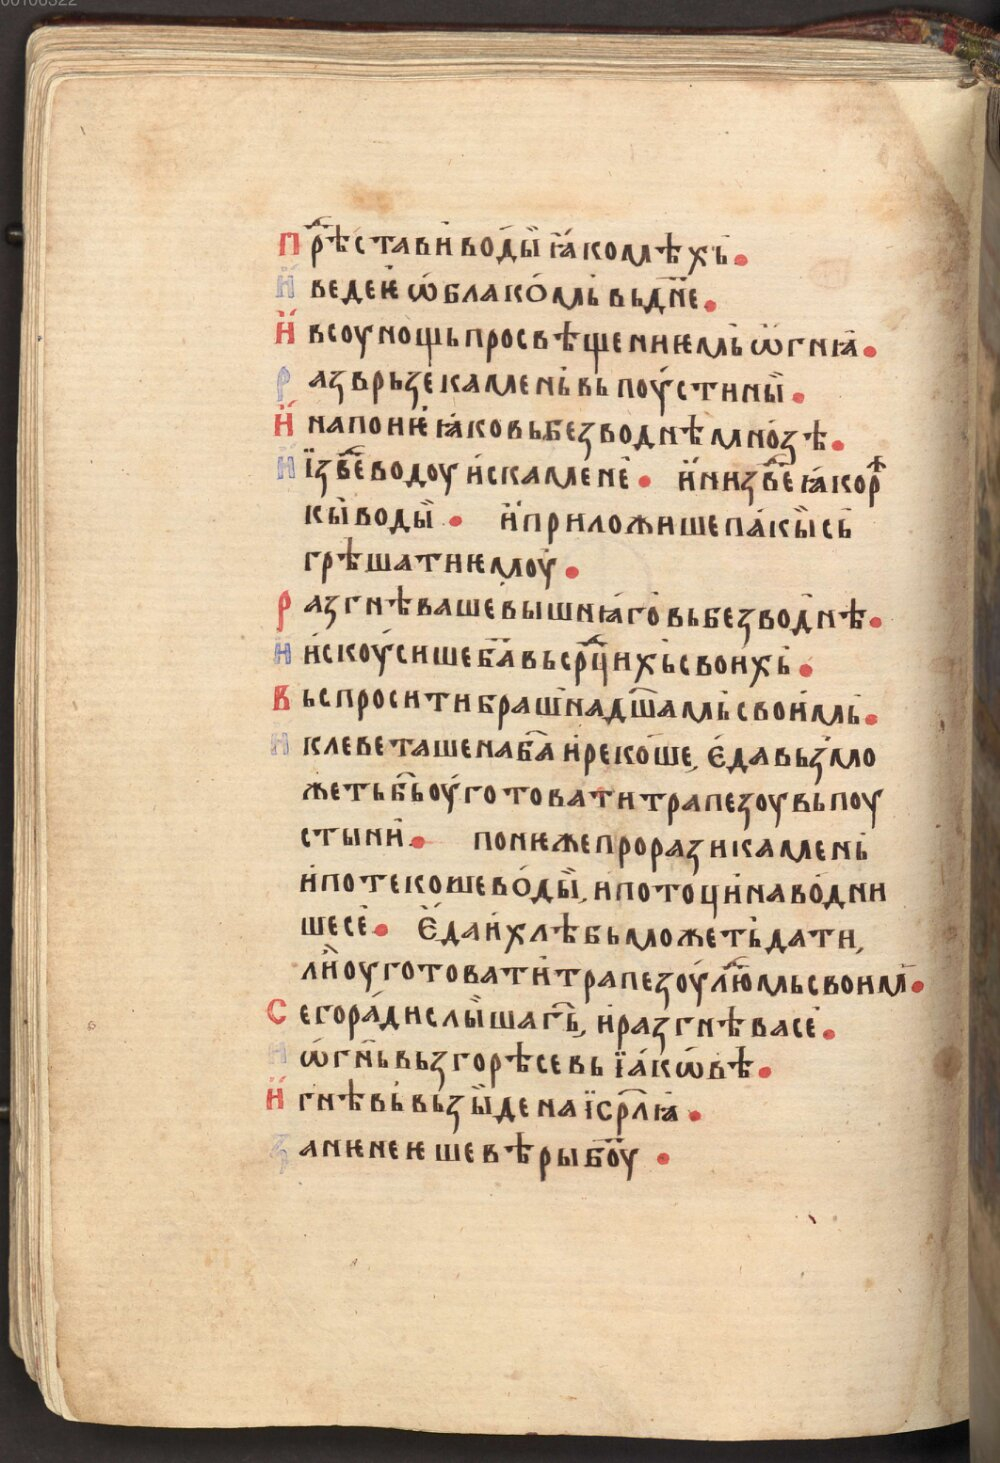 00106322
Прѣстави воды ꙗко мѣхь.
И веде ѥ ѡблакомь вь дн҃е.
И всоу нощь просвѣщениѥмь ѡгнꙗ.
Разврьзе камень вь поустины.
И напои ѥ ꙗко вь безⸯводнѣ мнозѣ.
И їзве водоу ис камене. и низве ꙗко рѣ
кы воды. и приложише пакы сь
грѣшати ѥмоу.
Разгнѣваше вышнꙗго вь безводнѣ.
И искоусише ба҃ вь срⷣцихь своихь.
Вьспросити брашна дш҃амь своимь.
И клеветаше на ба҃ и рекоше, ѥда вьзмо
жеть бь҃ оуготовати трапезоу вь поу
стыни. Понѥже прорази камень
и потекоше воды, и потоци наводни
ше се. Єда и хлѣбь можеть дати,
ли оуготовати трапезоу людⷨмь своим.
Сего ради слыша гь҃, и разгнѣва се.
И ѡгнь вьзгорѣ се вь їакѡвѣ.
И гнѣвь вьзыде на їсрл҃ꙗ.
Занѥ не ѥше вѣры боу҃.